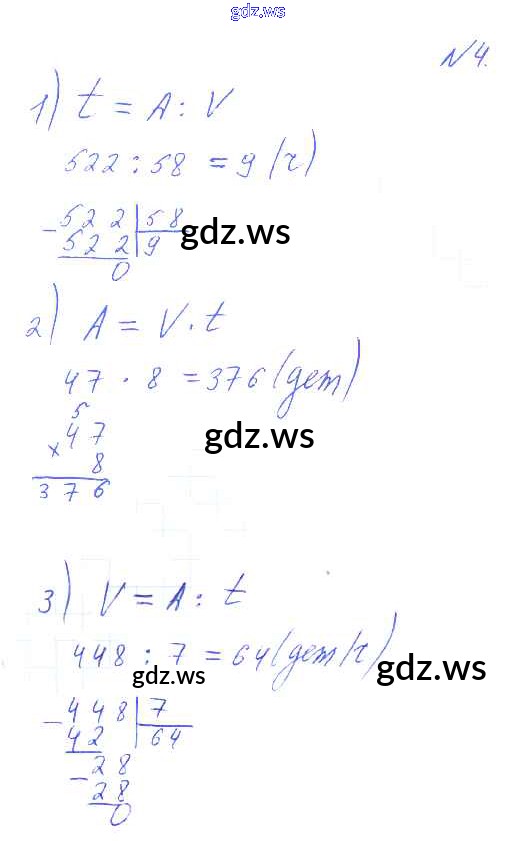 gdz.ws
№4.
1) t = A : V
522 : 58 = 9 (г)
- 522 | 58
522 | 9
gdz.ws
0
2) A = V · t
47 · 8 = 376 (дет)
5
× 47
8
gdz.ws
376
3) V = A : t
448 : 7 = 64 (дет/г)
gdz.ws
gdz.ws
- 448 | 7
42 | 64
- 28
28
0